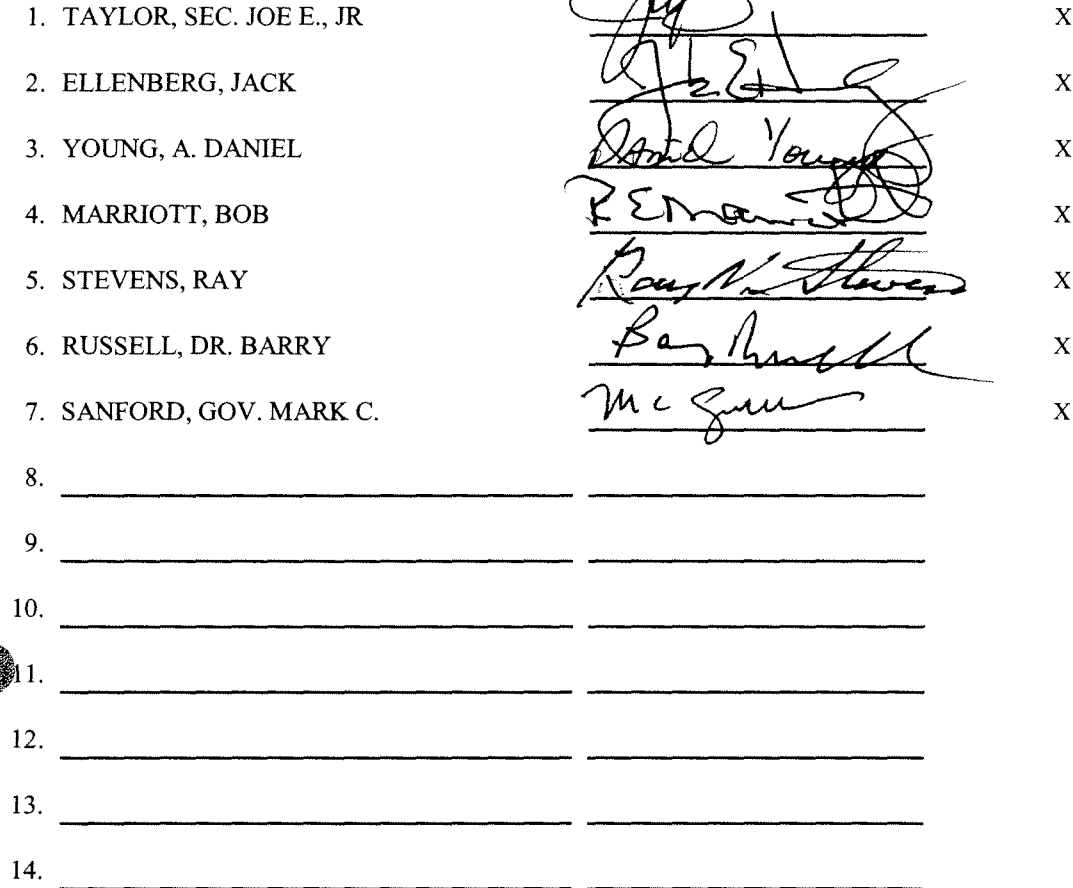 1. TAYLOR, SEC. JOE E., JR X
2. ELLENBERG, JACK X
3. YOUNG, A. DANIEL Daniel Young X
4. MARRIOTT, BOB X
5. STEVENS, RAY Ray N. Stevens X
6. RUSSELL, DR. BARRY Barry Russell X
7. SANFORD, GOV. MARK C. X
8.
9.
10.
11.
12.
13.
14.